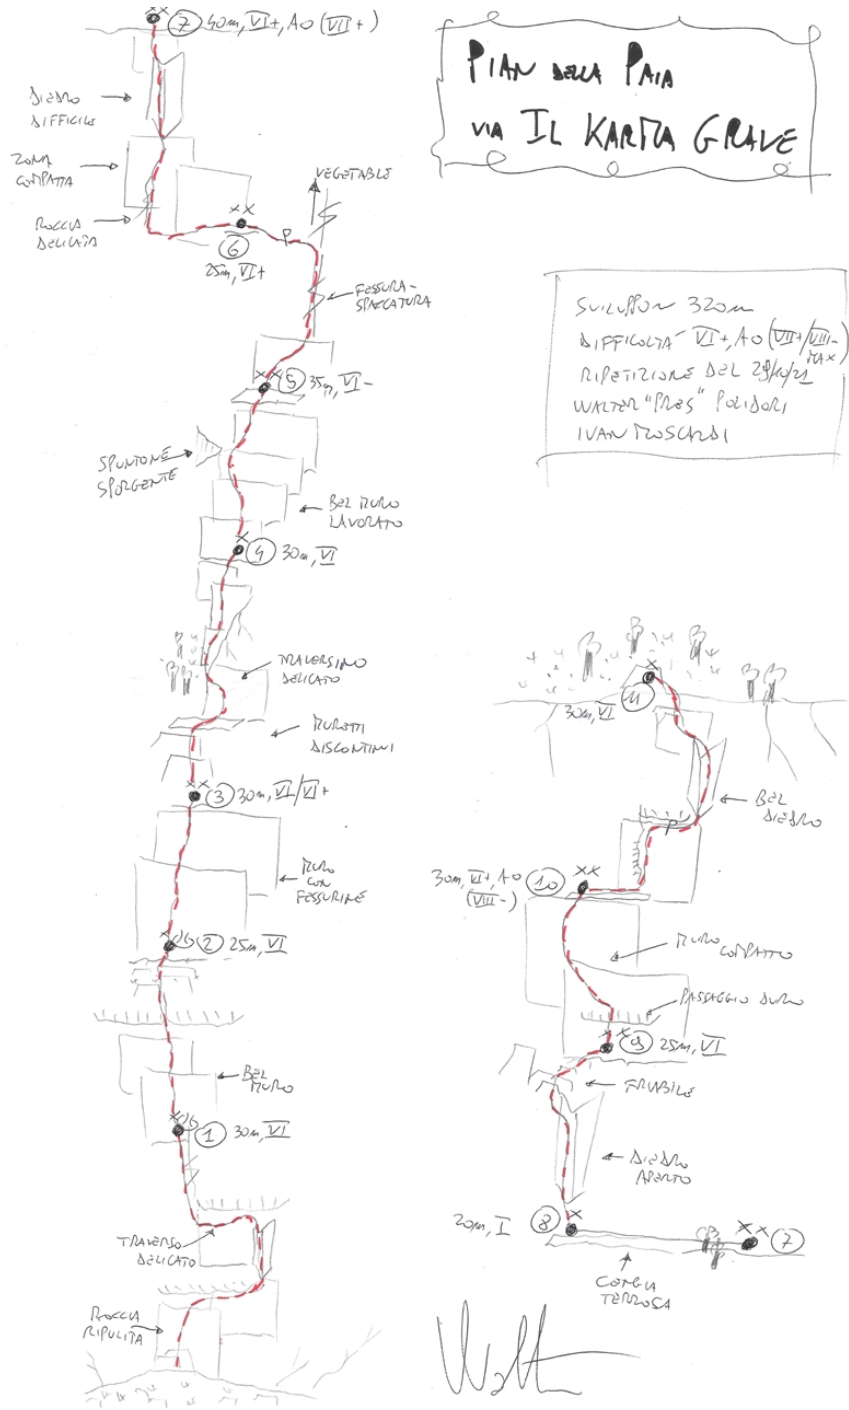 PIAN DELLA PAIA
VIA IL KARMA GRAVE
SVILUPPO 320m
DIFFICOLTA' VI+, A0 (VII+/VIII-
MAX)
RIPETIZIONE DEL 29/10/21
WALTER "PRES" POLIDORI
IVAN MOSCARDI
7 40m, VI+, A0 (VII+)
DIEDRO
DIFFICILE
ZONA
COMPATTA
ROCCIA
DELICATA
VEGETABLE
P
6
25m, VI+
FESSURA-
SPACCATURA
5 35m, VI-
SPUNTONE
SPORGENTE
BEL MURO
LAVORATO
4 30m, VI
TRAVERSINO
DELICATO
MURETTI
DISCONTINUI
3 30m, VI/VI+
MURO
CON
FESSURINE
2 25m, VI
BEL
MURO
1 30m, VI
TRAVERSO
DELICATO
ROCCIA
RIPULITA
11
30m, VI
BEL
DIEDRO
P
30m, VI+, A0 10
(VIII-)
MURO
COMPATTO
PASSAGGIO DURO
9 25m, VI
FRIABILE
DIEDRO
APERTO
20m, I 8
7
CENGIA
TERROSA